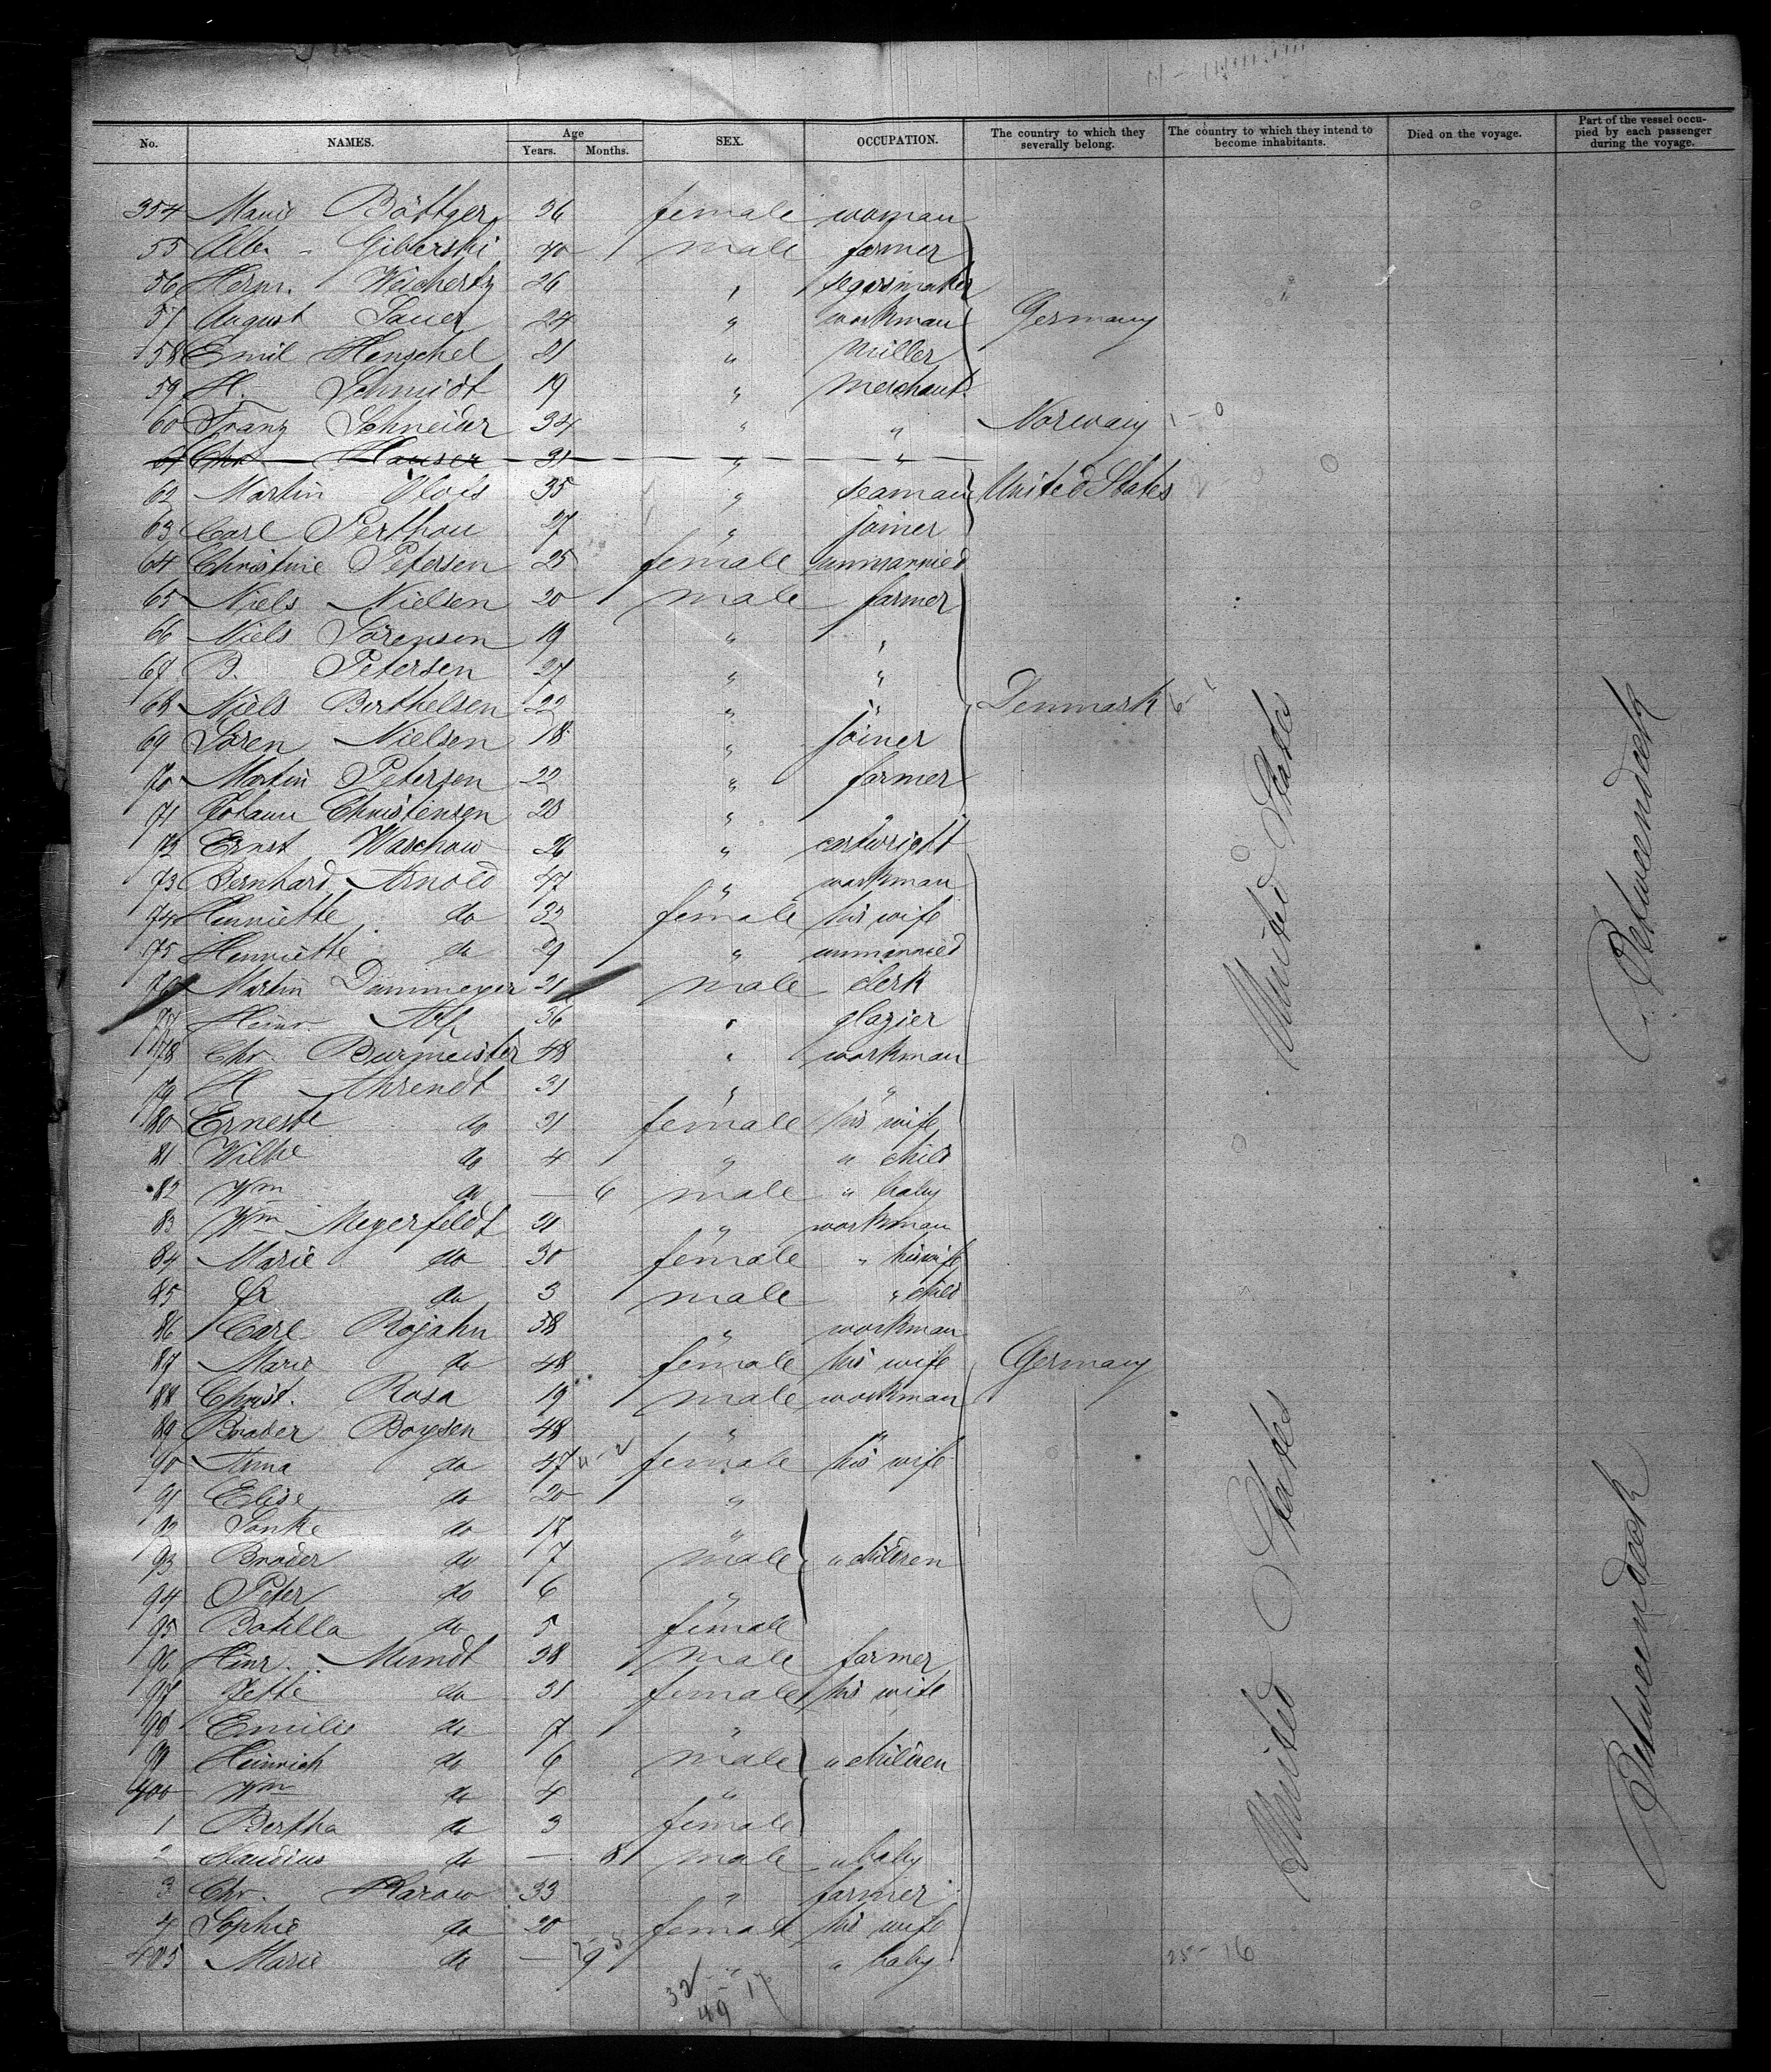 No. NAMES. Age Years. Months. SEX. OCCUPATION. The country to which they severally belong. The country to which they intend to become inhabitants. Died on the voyage. Part of the vessel occupied by each passenger during the voyage.
354 Marie Böttger 36 female woman
55 Giberski 40 male farmer
56 Herm. Weichertz 26 " segarsmaker
57 August Sauer 24 " workman Germany
58 Emil Henschel 21 " miller
59 H. Schmidt 19 " merchant
60 Franz Schneider 34 " " Norway 1-0
61 Chr Hauser 31 " "
62 Martin Olois 35 " seaman United States
63 Carl Perthou 27 " joiner
64 Christine Petersen 25 female unmarried
65 Niels Nielsen 20 male farmer
66 Niels Sörensen 19 " "
67 B. Petersen 27 " "
68 Niels Berthelsen 22 " " Denmark
69 Sören Nielsen 18 " joiner
70 Martin Petersen 22 " farmer
71 Johann Christensen 20 " "
72 Ernst Waschow 26 " cartwright
73 Bernhard Arnold 47 " workman
74 Henriette do 32 female his wife
75 Henriette do 29 " unmarried
76 Martin Dammeyer 21 male clerk
77 Heinr. 36 " glazier
78 Chr. Burmeister 48 " workman
79 H Ahrendt 31 " "
80 Erneste do 31 female his wife
81 do 4 " " child
82 Wm do — 6 male " baby
83 Wm Meyerfeldt 31 " workman
84 Marie do 30 female " his wife
85 Fr do 3 male " child
86 Carl Rojahn 58 " workman
87 Marie do 48 female his wife Germany
88 Christ. Rosa 19 male workman
89 Broder Boysen 48 " "
90 Anna do 47 female his wife
91 Elise do 20 "
92 Sonke do 17 "
93 Broder do 7 male " children
94 Peter do 6 "
95 Botilla do 5 female
96 Hinr. Mundt 38 male farmer
97 Jette do 31 female his wife
98 Emilie do 7 "
99 Heinrich do 6 male " children
400 Wm do 4 "
1 Bertha do 3 female
2 Claudius do — 8 male " baby
3 Chr. Karow 33 " farmer
4 Sophie do 20 female his wife
405 Marie do — 9 " " baby
25-16
32 17
49
United States
United States
Betweendeck
Betweendeck